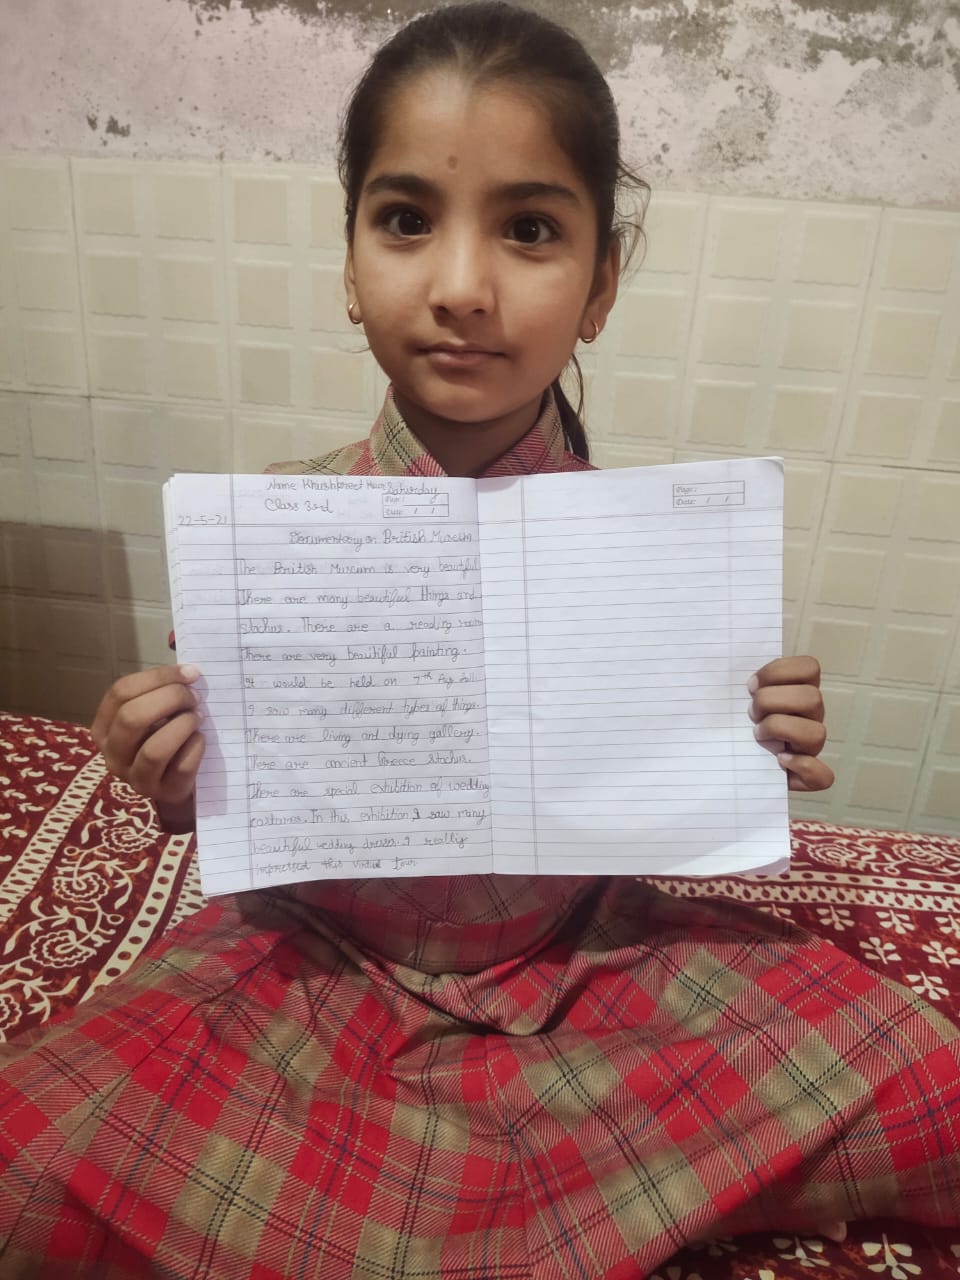 Name Khushpreet Kaur Saturday
Class 3rd
Page:
Date: / /
22-5-21
Documentary on British Museum
The British Museum is very beautiful
There are many beautiful things and
stachus. There are a reading room
There are very beautiful painting.
It would be held on 7th Aug 2011
I saw many different types of things.
There are living and dying gallery.
There are ancient Greece stachus.
There are special exhibition of wedding
costumes. In this exhibition I saw many
beautiful wedding dresses. I really
impressed this virtual tour.
Page:
Date: / /